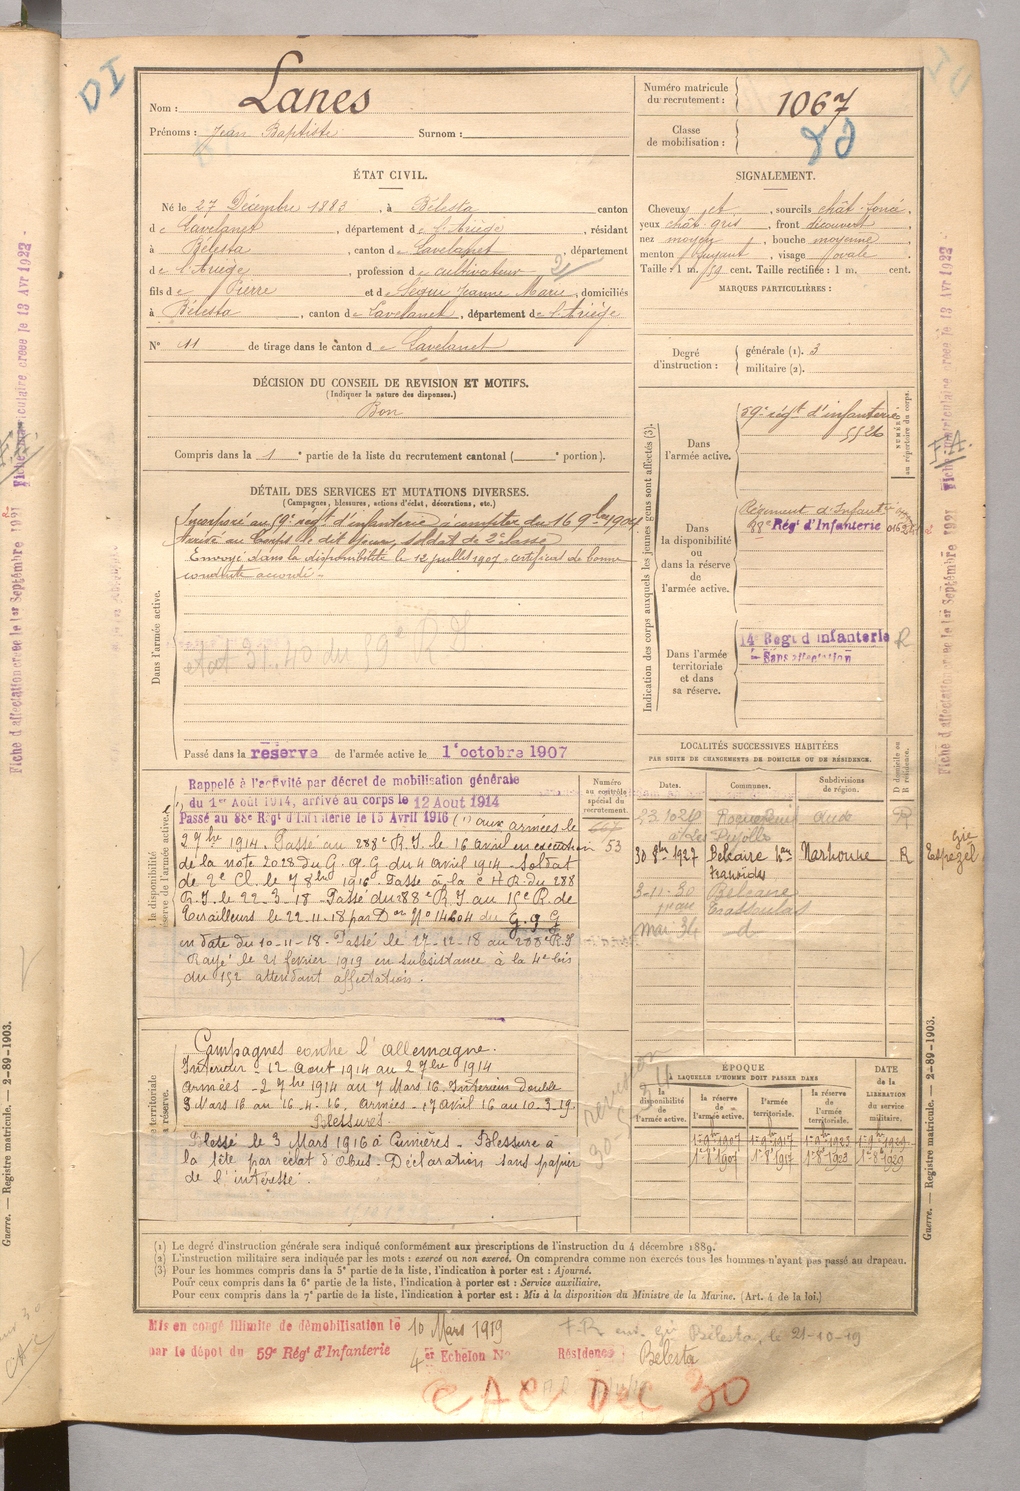 Nom : Lanes
Prénoms : Jean Baptiste Surnom :
Numéro matricule du recrutement : 1067
Classe de mobilisation :
ÉTAT CIVIL.
Né le 27 Décembre 1883, à Bélesta canton
de Lavelanet, département de l'Ariège, résidant
à Bélesta, canton de Lavelanet, département
de l'Ariège, profession de cultivateur
fils de Pierre et de Segue Jeanne Marie, domiciliés
à Bélesta, canton de Lavelanet, département de l'Ariège
N° 11 de tirage dans le canton de Lavelanet
SIGNALEMENT.
Cheveux et, sourcils chât-foncé,
yeux chât gris, front découvert
nez moyen, bouche moyenne
menton fuyant, visage ovale
Taille : 1 m. 59 cent. Taille rectifiée : 1 m. cent.
MARQUES PARTICULIÈRES :
Degré d'instruction : générale (1). 3
militaire (2).
DÉCISION DU CONSEIL DE REVISION ET MOTIFS.
(Indiquer la nature des dispenses.)
Bon
Compris dans la 1e partie de la liste du recrutement cantonal ( e portion).
DÉTAIL DES SERVICES ET MUTATIONS DIVERSES.
(Campagnes, blessures, actions d'éclat, décorations, etc.)
Dans l'armée active.
Incorporé au 59e régt d'infanterie à compter du 16 9bre 1904
Arrivé au Corps le dit jour, soldat de 2e classe
Envoyé dans la disponibilité le 12 juillet 1907 - certificat de bonne
conduite accordé -
Passé dans la réserve de l'armée active le 1er octobre 1907
Indication des corps auxquels les jeunes gens sont affectés (3).
Dans l'armée active.
59e régt d'infanterie
5526
NUMÉRO au répertoire du corps.
Dans la disponibilité ou dans la réserve de l'armée active.
Régiment d'Infante
88e Régt d'Infanterie
Dans l'armée territoriale et dans sa réserve.
14e Régt d'Infanterie R
Sans affectation
LOCALITÉS SUCCESSIVES HABITÉES
PAR SUITE DE CHANGEMENTS DE DOMICILE OU DE RÉSIDENCE.
Dates. Communes. Subdivisions de région. D domicile ou R résidence.
23.10.26 Roquefeuil Aude R
30 8bre 1927 Belcaire Narbonne R
3-11-30 Belcaire
Mai 34 d
Rappelé à l'activité par décret de mobilisation générale
du 1er Août 1914, arrivé au corps le 12 Aout 1914
Passé au 88e Régt d'Infanterie le 15 Avril 1916 (1) aux armées le
2 7bre 1914. Passé au 288e R.I. le 16 avril en exécution
de la note 2028 du G.Q.G du 4 avril 1914 - Soldat
de 2e Cl. le 7 8bre 1916. Passé à la C H R du 288
R.I. le 22-3-18 - Passé du 288e R.I au 15e R. de
Tirailleurs le 22-11-18 par Don No 14604 du G.Q.G
en date du 10-11-18 - Passé le 17-12-18 au 288e R.I
Rayé le 21 février 1919 en subsistance à la 4e bis
du 152 attendant affectation.
Numéro au contrôle spécial du recrutement.
53
Campagnes contre l'allemagne.
Intérieur : 12 Aout 1914 au 2 7bre 1914
Armées - 2 7bre 1914 au 7 Mars 16. Intérieur double
8 Mars 16 au 16-4-16. Armées - 17 avril 16 au 10-3-19.
Blessures.
Blessé le 3 Mars 1916 à Cumières - Blessure à
la tête par éclat d'obus - Déclaration sans papier
de l'intéressé.
ÉPOQUE
À LAQUELLE L'HOMME DOIT PASSER DANS
la disponibilité de l'armée active. la réserve de l'armée active. l'armée territoriale. la réserve de l'armée territoriale. DATE de la LIBÉRATION du service militaire.
1er 8bre 1907 1er 8bre 1917 1er 8bre 1923 1er 8bre 1929
(1) Le degré d'instruction générale sera indiqué conformément aux prescriptions de l'instruction du 4 décembre 1889.
(2) L'instruction militaire sera indiquée par les mots : exercé ou non exercé. On comprendra comme non exercés tous les hommes n'ayant pas passé au drapeau.
(3) Pour les hommes compris dans la 5e partie de la liste, l'indication à porter est : Ajourné.
Pour ceux compris dans la 6e partie de la liste, l'indication à porter est : Service auxiliaire.
Pour ceux compris dans la 7e partie de la liste, l'indication à porter est : Mis à la disposition du Ministre de la Marine. (Art. 4 de la loi.)
Mis en congé illimité de démobilisation le 10 Mars 1919
par le dépôt du 59e Régt d'Infanterie 4e Echelon No Résidence : Bélesta
Bélesta, le 21-10-19
CAC DEC 30
Guerre. — Registre matricule. — 2-89-1903.
Guerre. — Registre matricule. — 2-89-1903.
Fiche d'affectation créée le 1er Septembre 1921
Fiche matriculaire créée le 13 Avr 1922
Fiche d'affectation créée le 1er Septembre 1921
Fiche matriculaire créée le 13 Avr 1922